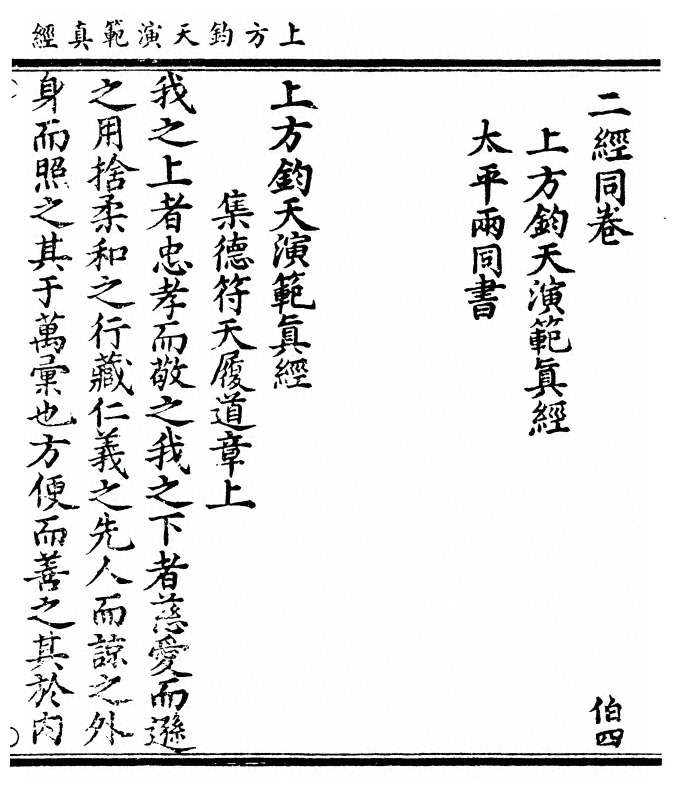 上方鈞天演範真經
二經同卷
伯四
上方鈞天演範眞經
太平兩同書
上方鈞天演範眞經
集德符天履道章上
我之上者忠孝而敬之我之下者慈愛而遜
之用捨柔和之行藏仁義之先人而諒之外
身而照之其于萬彙也方便而善之其於內